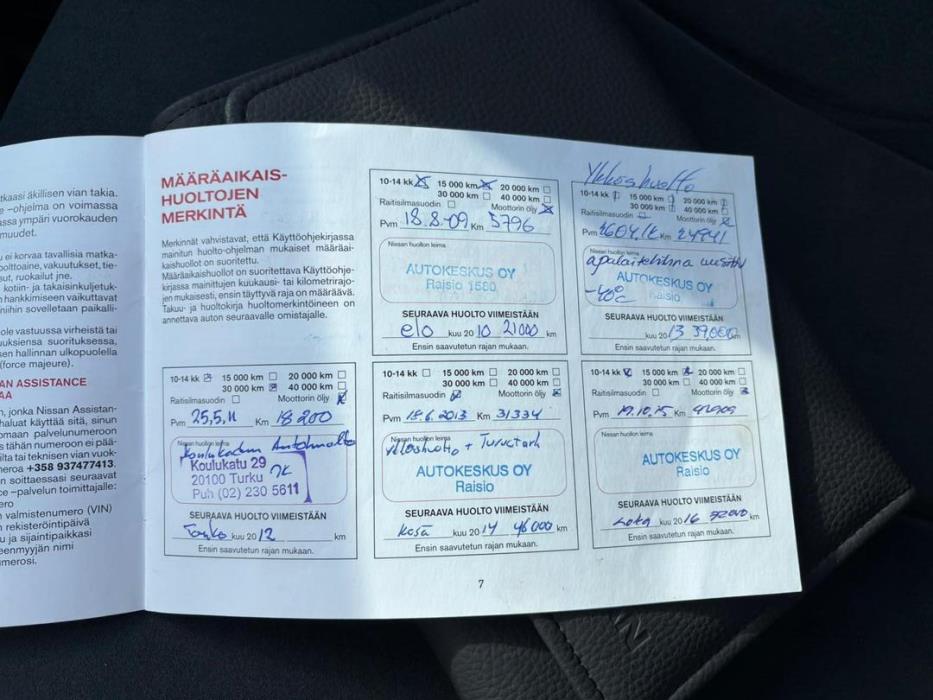 tkaasi äkillisen vian takia.
e –ohjelma on voimassa
assa ympäri vuorokauden
muudet.
u ei korvaa tavallisia matka-
polttoaine, vakuutukset, tie-
sut, ruokailut jne.
kotiin - ja takaisinkuljetuk-
hankkimiseen vaikuttavat
niihin sovelletaan paikalli-
ole vastuussa virheistä tai
uuksiensa suorituksessa,
sen hallinnan ulkopuolella
(force majeure).
AN ASSISTANCE
AA
, jonka Nissan Assistan-
haluat käyttää sitä, sinun
omaan palvelunumeroon
s tähän numeroon ei pää-
ilta tai teknisen vian vuok-
meroa +358 937477413.
soittaessasi seuraavat
ce –palvelun toimittajalle:
ero
valmistenumero (VIN)
rekisteröintipäivä
u ja sijaintipaikkasi
eenmyyjän nimi
umerosi.
MÄÄRÄAIKAIS-
HUOLTOJEN
MERKINTÄ
Merkinnät vahvistavat, että Käyttöohjekirjassa
mainitun huolto-ohjelman mukaiset määräai-
kaishuollot on suoritettu.
Määräaikaishuollot on suoritettava Käyttöohje-
kirjassa mainittujen kuukausi- tai kilometrirajo-
jen mukaisesti, ensin täyttyvä raja on määräävä.
Takuu- ja huoltokirja huoltomerkintöineen on
annettava auton seuraavalle omistajalle.
10-14 kk 15 000 km 20 000 km
30 000 km 40 000 km
Raitisilmasuodin Moottorin öljy
Pvm 18.8.09 Km 5796
Nissan huollon leima
AUTOKESKUS OY
Raisio 1580
SEURAAVA HUOLTO VIIMEISTÄÄN
elo kuu 20 10 21000 km
Ensin saavutetun rajan mukaan.
Ykköshuolto
10-14 kk 15 000 km 20 000 km
30 000 km 40 000 km
Raitisilmasuodin Moottorin öljy
Pvm Km 24941
Nissan huollon leima
AUTOKESKUS OY
-40°C Raisio
SEURAAVA HUOLTO VIIMEISTÄÄN
kuu 20 13 39,000 km
Ensin saavutetun rajan mukaan.
10-14 kk 15 000 km 20 000 km
30 000 km 40 000 km
Raitisilmasuodin Moottorin öljy
Pvm 25,5,11 Km 18200
Nissan huollon leima
Koulukadun Autohuolto
Koulukatu 29
20100 Turku
Puh (02) 230 5611
SEURAAVA HUOLTO VIIMEISTÄÄN
Touko kuu 20 12 km
Ensin saavutetun rajan mukaan.
10-14 kk 15 000 km 20 000 km
30 000 km 40 000 km
Raitisilmasuodin Moottorin öljy
Pvm 18.6.2013 Km 31334
Nissan huollon leima
Ykköshuolto + Turvatark
AUTOKESKUS OY
Raisio
SEURAAVA HUOLTO VIIMEISTÄÄN
Kesä kuu 20 14 46000 km
Ensin saavutetun rajan mukaan.
10-14 kk 15 000 km 20 000 km
30 000 km 40 000 km
Raitisilmasuodin Moottorin öljy
Pvm 19.10.15 Km
Nissan huollon leima
AUTOKESKUS OY
Raisio
SEURAAVA HUOLTO VIIMEISTÄÄN
Loka kuu 20 16 km
Ensin saavutetun rajan mukaan.
7